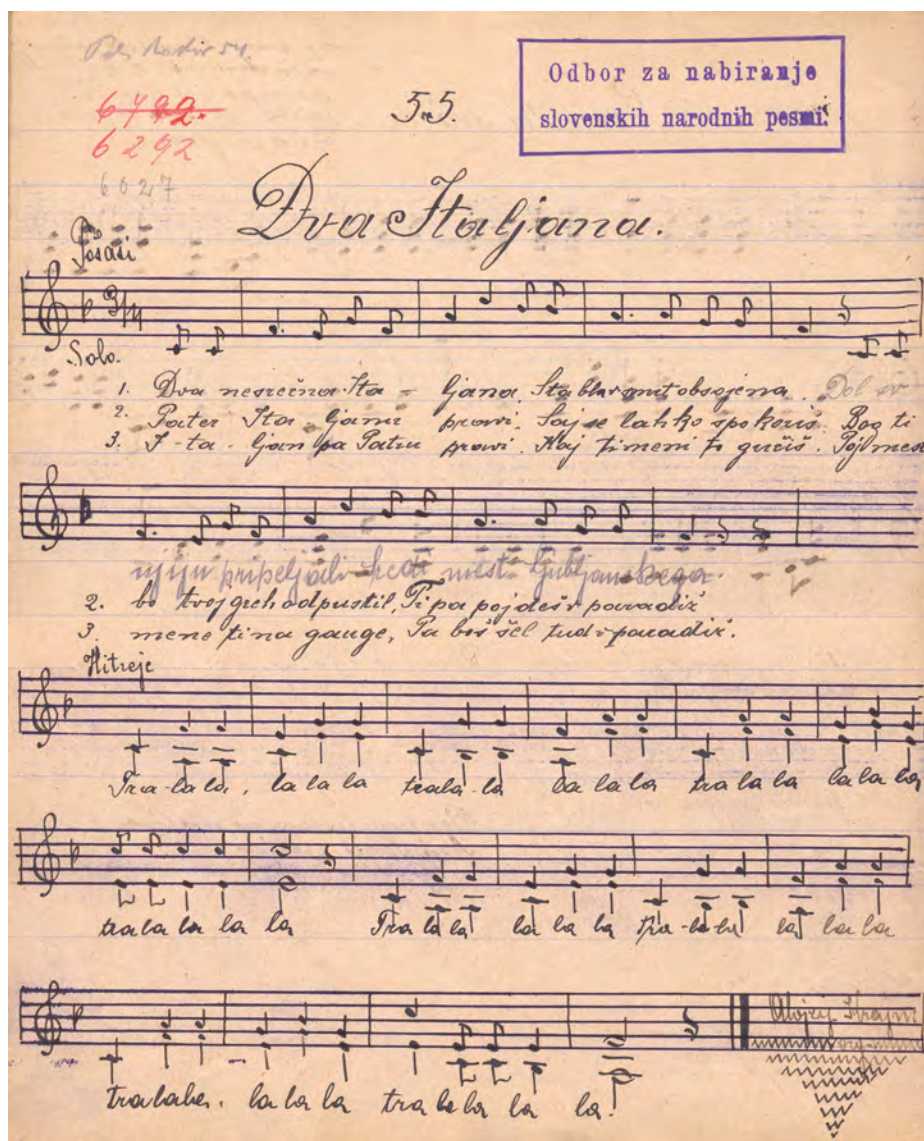 6492.
6292
6027
55.
Odbor za nabiranje
slovenskih narodnih pesmi.
Dva Italjana.
Počasi
3/4
Solo.
1. Dva nesrečna Ita - ljana, Sta bla v smrt obsojena. Dol so
2. Pater Ita ljanu pravi, Saj se lahko spokoriš. Bog ti
3. I - ta - ljan pa Patru pravi. Kaj ti meni to gučiš. Pojd mest
njiju pripeljali mest Ljubljanskega.
2. bo tvoj greh odpustil, Ti pa pojdeš v paradiž
3. mene ti na gauge, Pa boš šel tud v paradiž.
Hitreje
Tra-la la, la la la trala-la la la la tra la la la la la
tra la la la la Tra la la la la la tra-la-la la la la
tralala, la la la tra la la la la!
Alojzij